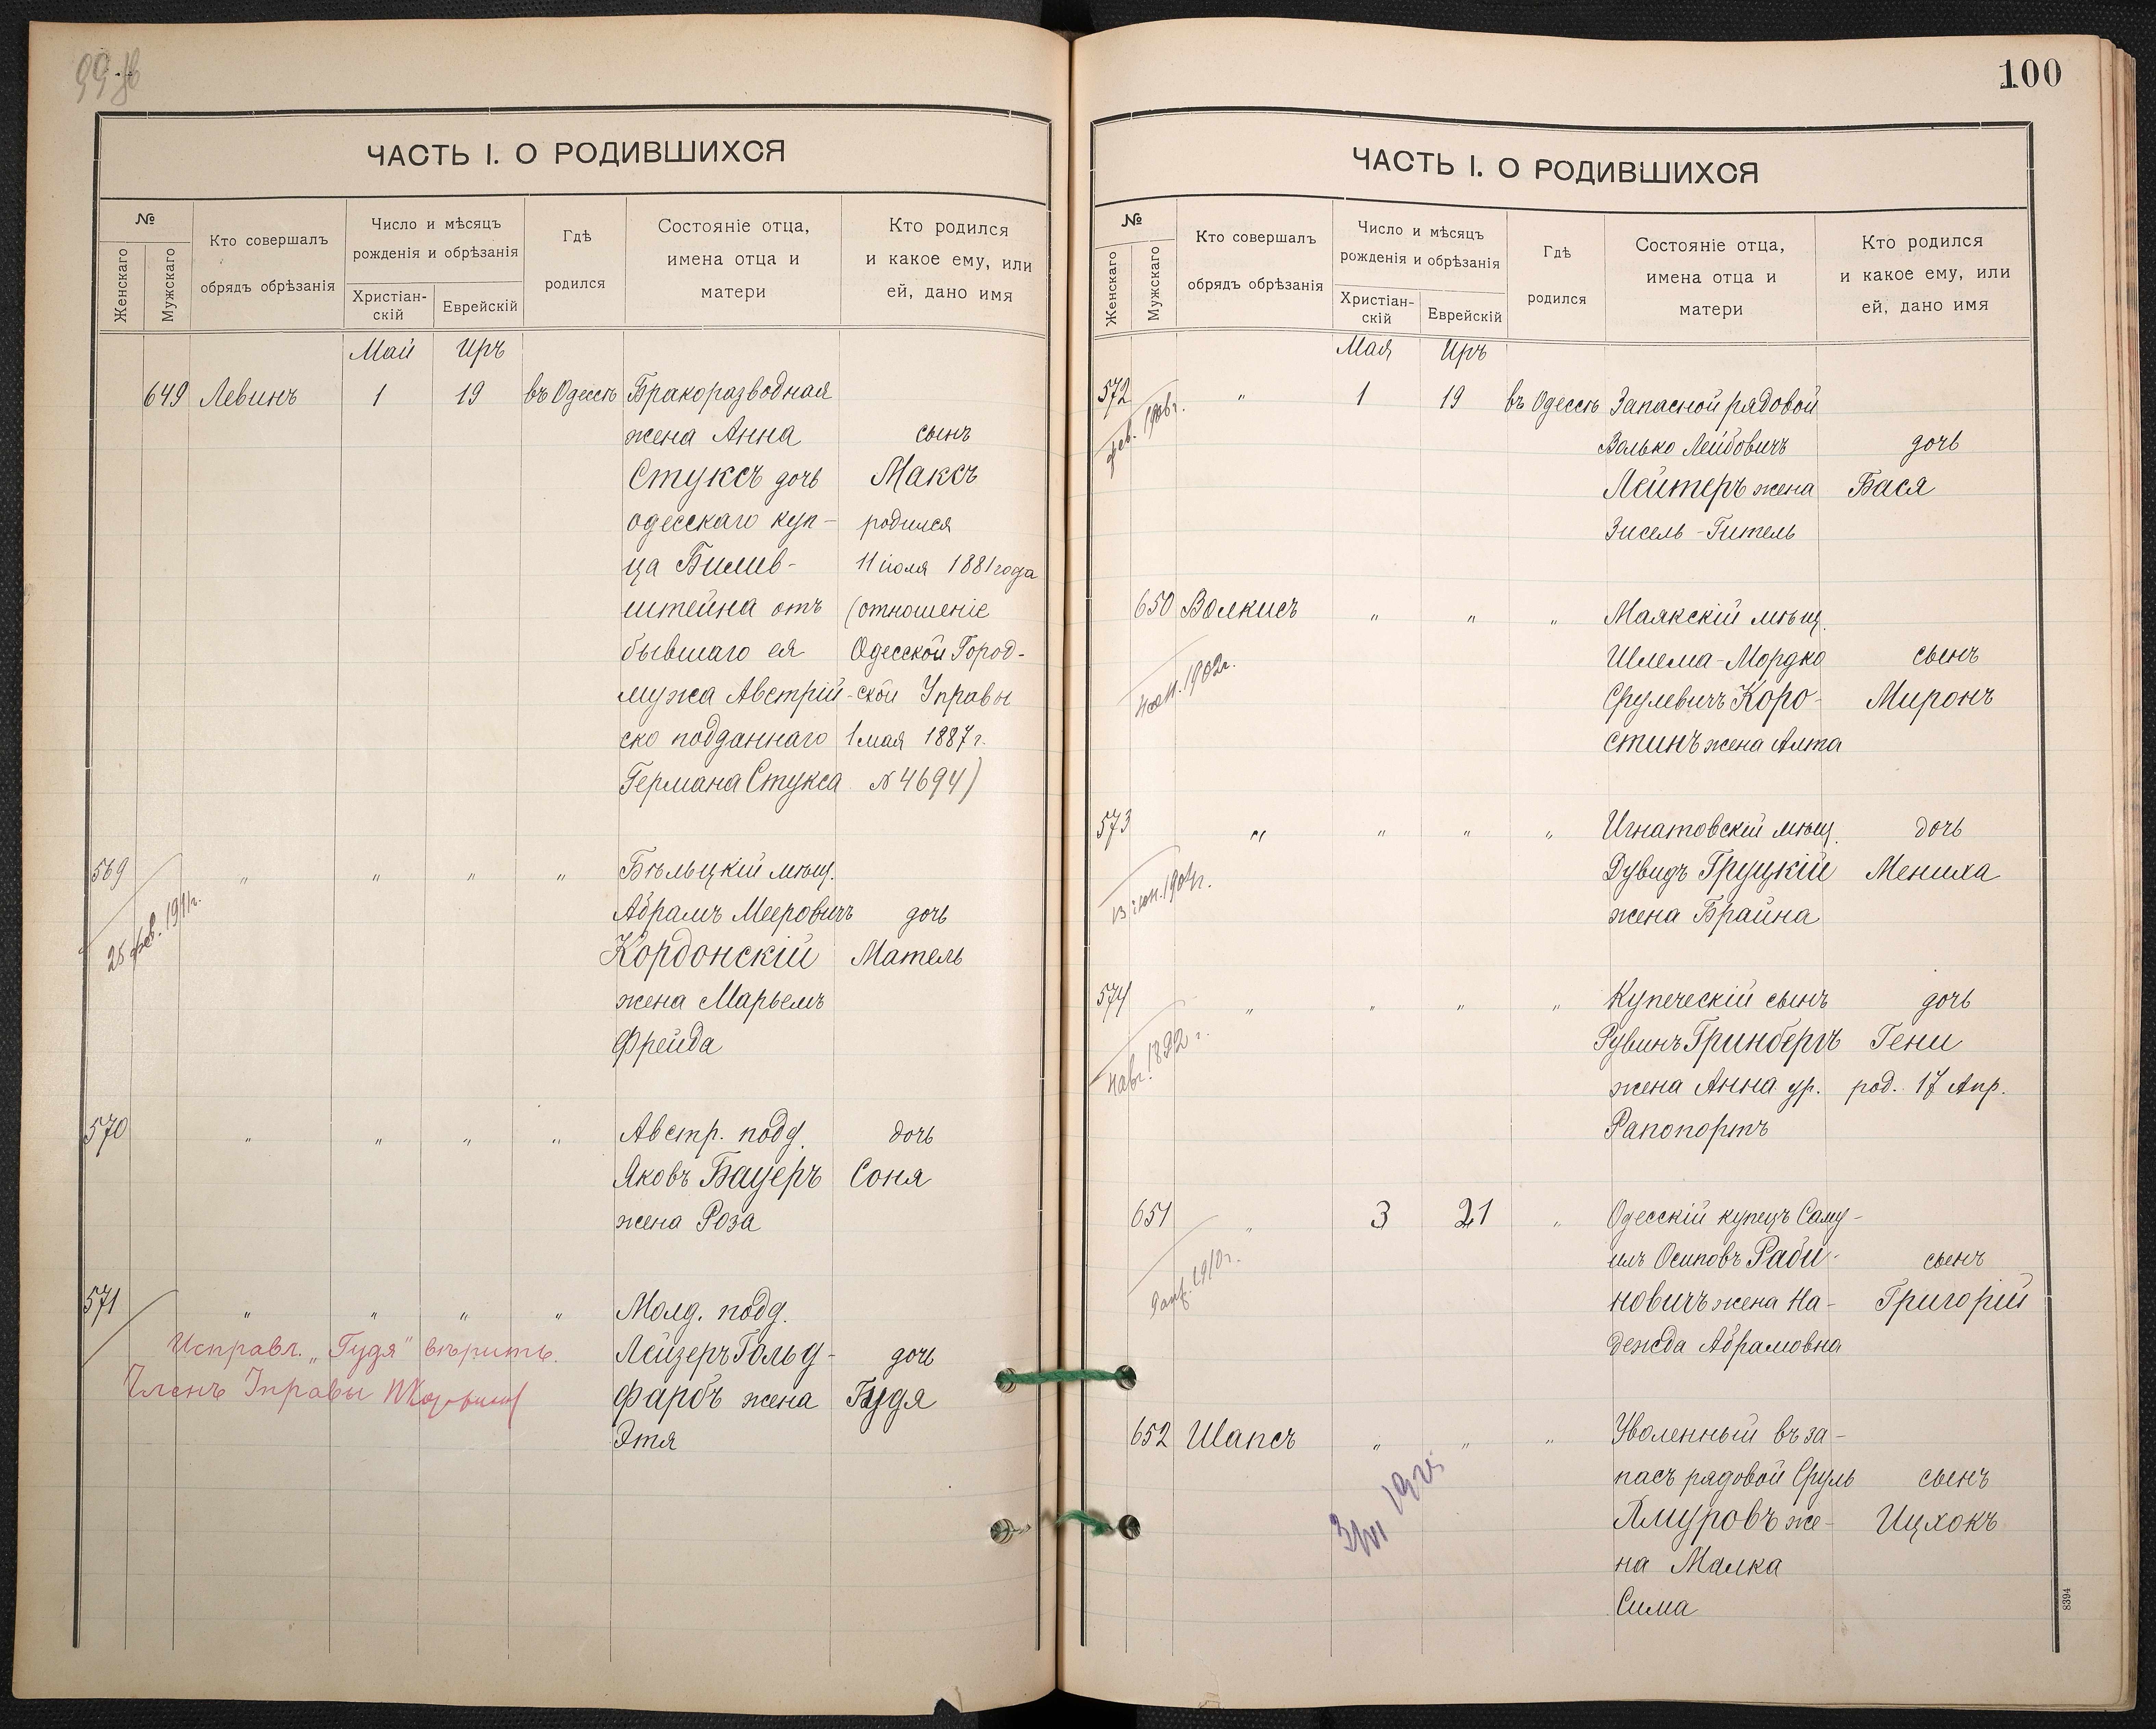 ЧАСТЬ I. О РОДИВШИХСЯ
№
Женскаго
Мужскаго
Кто совершалъ
обрядъ обрѣзанія
Число и мѣсяцъ
рожденія и обрѣзанія
Христіан-
скій
Еврейскій
Гдѣ
родился
Состояніе отца,
имена отца и
матери
Кто родился
и какое ему, или
ей, дано имя
Май Иръ
649 Левинъ 1 19 въ Одессѣ Бракоразводная
жена Анна сынъ
Стуксъ дочь Максъ
одесскаго куп- родился
ца Билив- 11 іюля 1881 года
штейна отъ (отношеніе
бывшаго ея Одесской Город-
мужа Австрій- ской Управы
ско подданнаго 1 мая 1887 г.
Германа Стукса № 4694)
569 " " " " Бѣльцкій мѣщ.
Абрамъ Мееровичъ дочь
25 фев. 1911г.
Кордонскій Матель
жена Марьемъ
Фрейда
570 " " " " Австр. подд. дочь
Яковъ Бауеръ Соня
жена Роза
571 " " " " Молд. подд.
Исправл. „Гудя" вѣрить. Лейзеръ Гольд- дочь
Членъ Управы фарбъ жена Гудя
Этя
100
ЧАСТЬ I. О РОДИВШИХСЯ
№
Женскаго
Мужскаго
Кто совершалъ
обрядъ обрѣзанія
Число и мѣсяцъ
рожденія и обрѣзанія
Христіан-
скій
Еврейскій
Гдѣ
родился
Состояніе отца,
имена отца и
матери
Кто родился
и какое ему, или
ей, дано имя
Мая Иръ
572 " 1 19 въ Одессѣ Запасной рядовой
фев. 1906г.
Волько Лейбовичъ дочь
Лейтеръ жена Бася
Зисель-Гитель
650 Волкисъ " " " Маякскій мѣщ.
Шлема-Мордко сынъ
1902г.
Срулевичъ Коро- Миронъ
стинъ жена Алта
573 " " " " Игнатовскій мѣщ. дочь
Дувидъ Груцкій Мениха
1904г.
жена Брайна
574 " " " " Купеческій сынъ дочь
Рувинъ Гринбергъ Гени
жена Анна ур. род. 17 Апр.
Рапопортъ
651 " 3 21 " Одесскій купецъ Саму-
илъ Осиповъ Раби- сынъ
1910г.
новичъ жена На- Григорій
дежда Абрамовна
652 Шапсъ " " " Уволенный въ за-
пасъ рядовой Сруль сынъ
Ямуровъ же- Ицхокъ
на Малка
Сима
8394